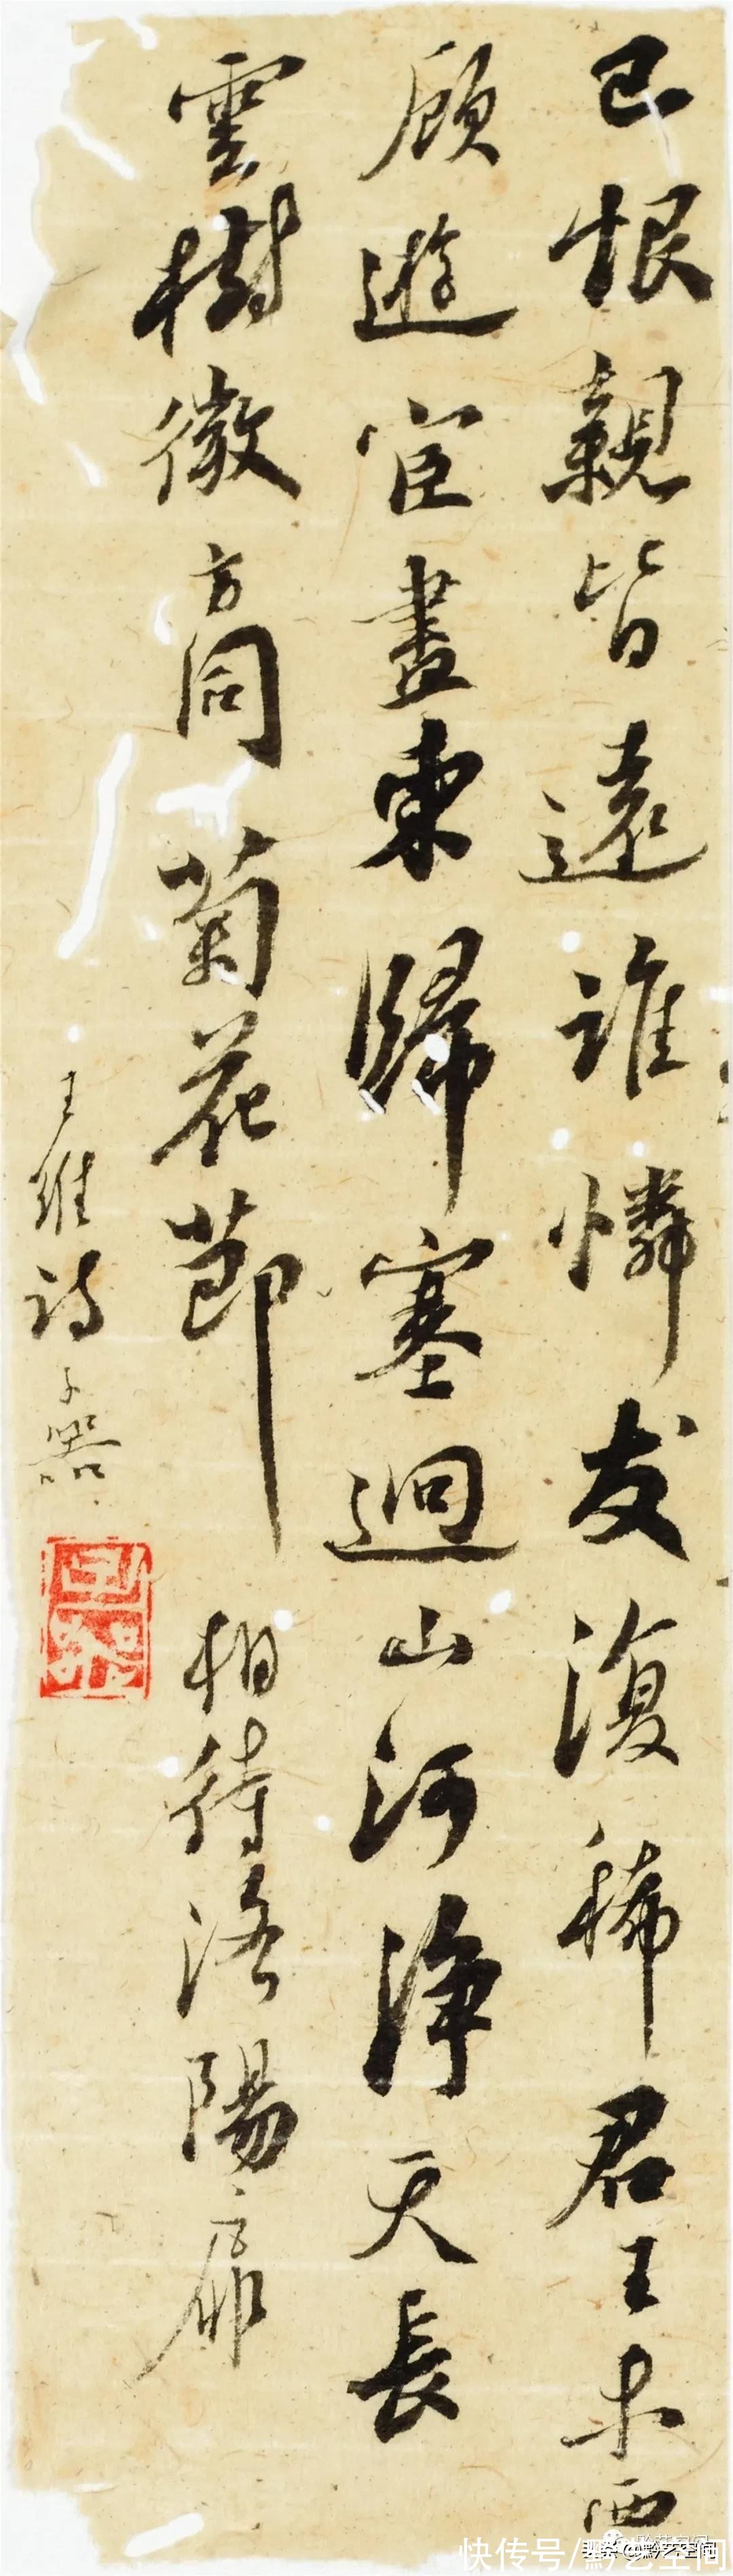 已恨親皆遠誰憐友復稀君王未西
顧遊宦盡東歸塞迥山河淨天長
雲樹微方同菊花節相待洛陽扉
王維詩
头条 @黔艺空间
快传号/黔艺空间